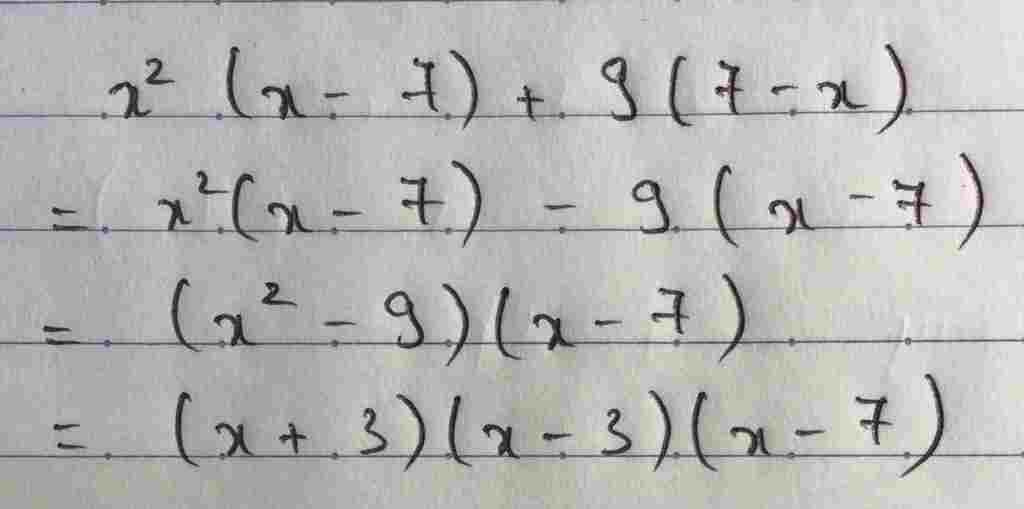 x² (x - 7) + 9 (7 - x)
= x² (x - 7) - 9 (x - 7)
= (x² - 9) (x - 7)
= (x + 3) (x - 3) (x - 7)